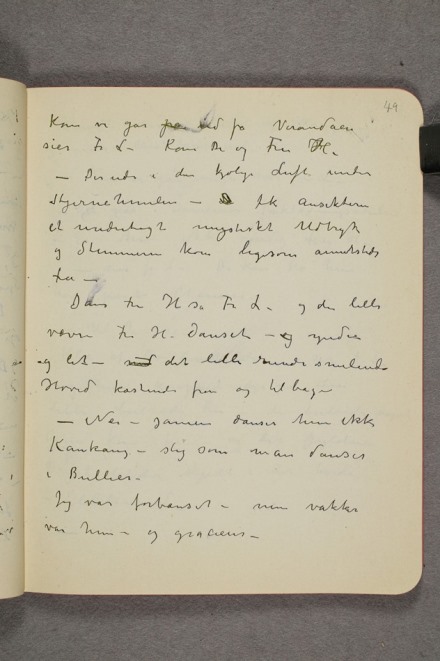 49
Kom vi går ud på Verandaen
sier Fr L – Kom De og Fru H.
– Derude i den kjølige Luft under
Stjernehimlen – fik Ansikterne
et underligt mystiskt Udtryk
og Stemmerne kom ligesom annetsteds
fra –
Dans Fru H sa Fr L. – og den lille
Fru H. Dansed – og
og let – det lille runde smilende
Hoved kastendes frem og tilbage
– Nei – Jamen danser hun ikke
Kankang – slig som man danser
i Bullier –
Jeg var forbauset – men vakker
var hun – og graciøus –